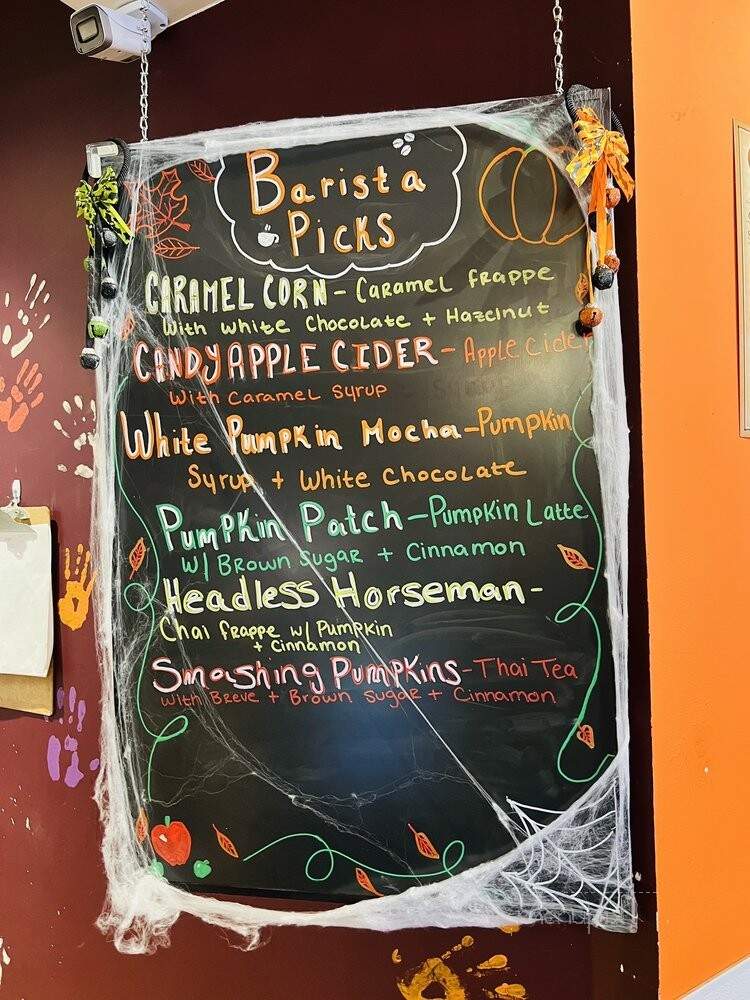 Barista
Picks
CARAMEL CORN - Caramel frappe
With White Chocolate + Hazelnut
CANDY APPLE CIDER - Apple Cider
With Caramel Syrup
White Pumpkin Mocha - Pumpkin
Syrup + White Chocolate
Pumpkin Patch - Pumpkin Latte
W/ Brown Sugar + Cinnamon
Headless Horseman -
Chai frappe w/ Pumpkin
+ cinnamon
Smashing Pumpkins - Thai Tea
With Breve + Brown Sugar + Cinnamon